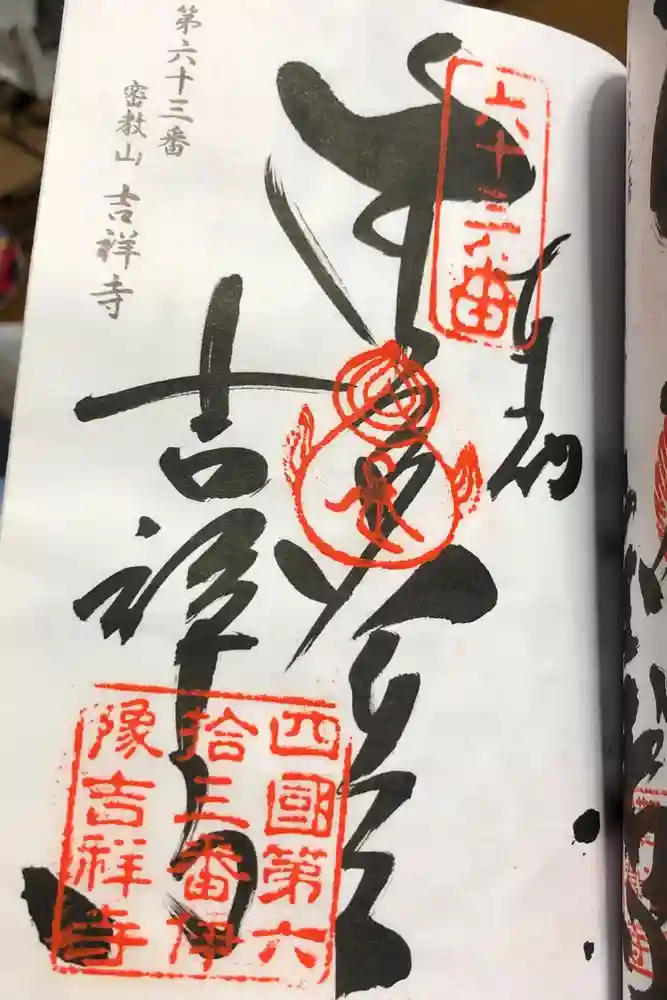 六十三番
奉納
吉祥寺
四國第六
拾三番伊
豫吉祥寺
第六十三番
密教山 吉祥寺